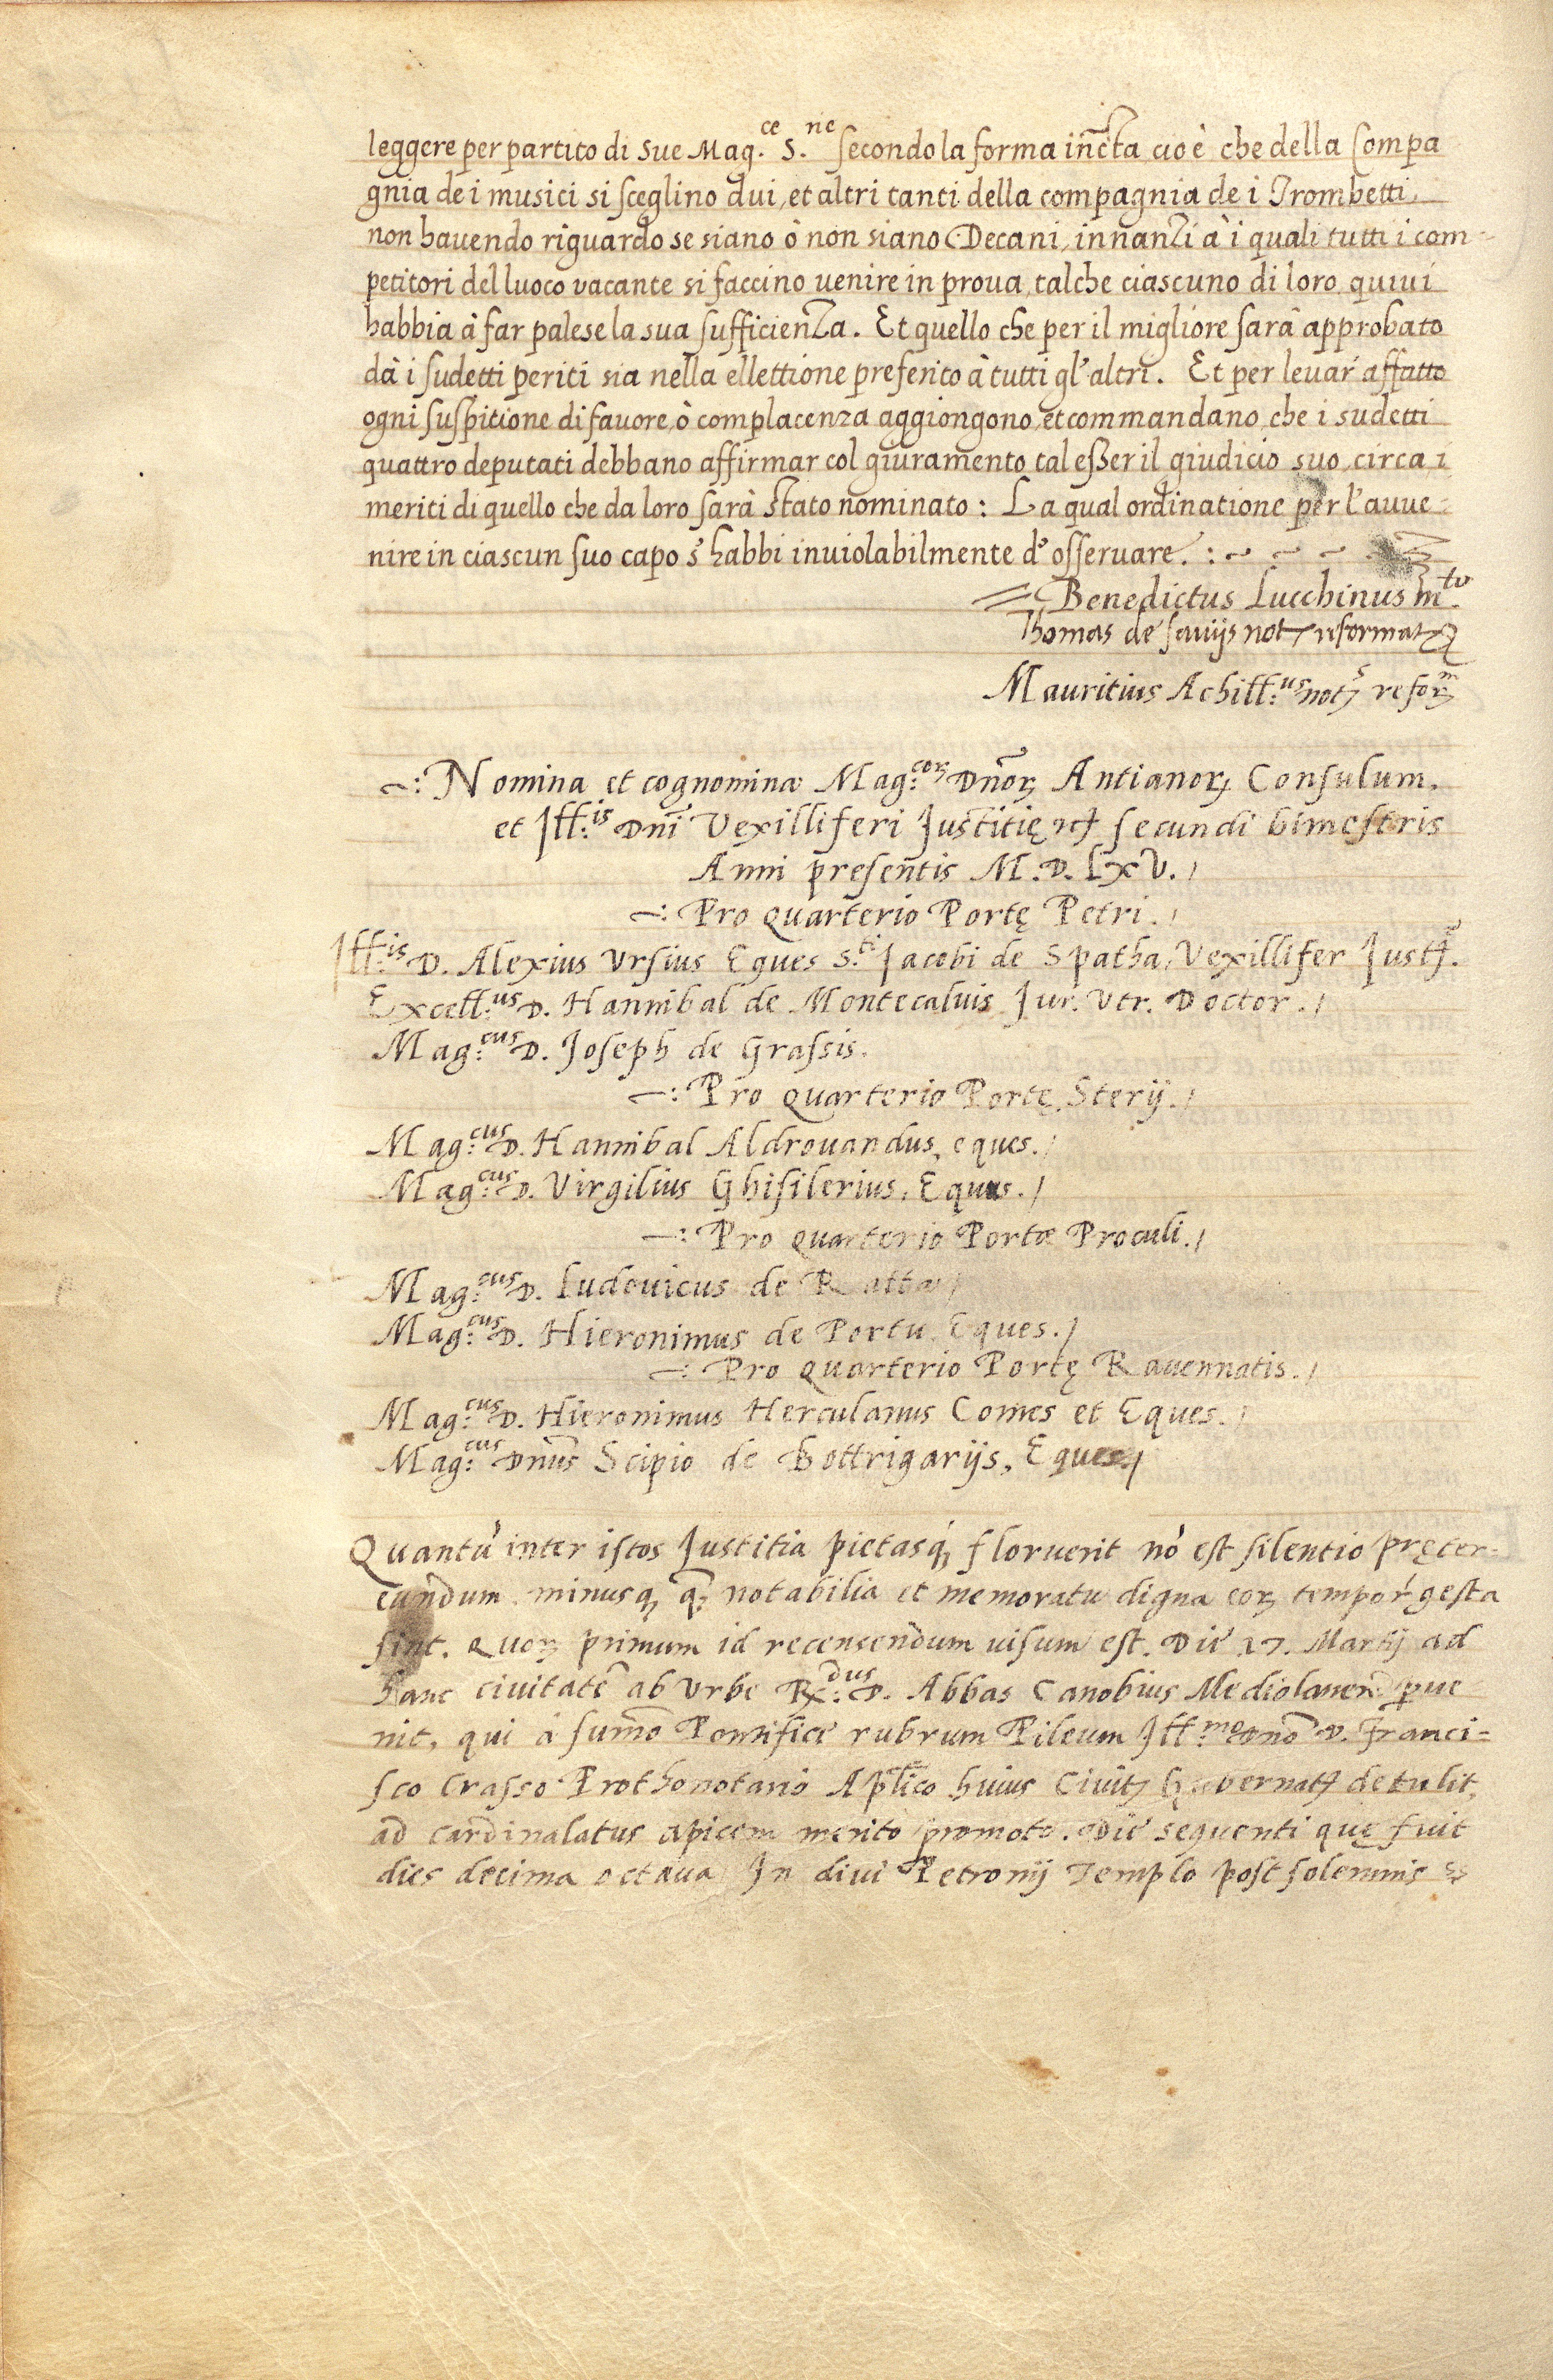 leggere per partito di sue Mag.ce S.ne secondo la forma infrãcta cioè che della Compa
gnia de i musici si sceglino dui, et altri tanti della compagnia de i Trombetti,
non havendo riguardo se siano ò non siano Decani, innanzi à i quali tutti i com-
petitori del luoco vacante si faccino uenire in proua, talche ciascuno di loro quiui
habbia à far palese la sua sufficienza. Et quello che per il migliore sarà approbato
dà i sudetti periti sia nella ellettione preferito à tutti gl'altri. Et per leuar affatto
ogni suspitione di fauore, ò complacenza aggiongono, et commandano, che i sudetti
quattro deputati debbano affirmar col giuramento tal esser il giudicio suo, circa i
meriti di quello che da loro sarà stato nominato: La qual ordinatione per l'auue-
nire in ciascun suo capo s'habbi inuiolabilmente d'osseruare. :~ ~ ~
Benedictus Lucchinus
Thomas de sauijs not reformat
Mauritius Achill:us not reform
~: Nomina et cognomina Mag:corꝝ Dñorꝝ Antianorꝝ Consulum,
et Ill:is Dñi Vexilliferi Justitię secundi bimestris
Anni presentis M.D.LXV./
~: Pro Quarterio Portę Petri./
Ill:is D. Alexius Ursius Eques S.ti Jacobi de Spatha, Vexillifer Just.
Excell:us D. Hannibal de Montecaluis Jur. Utr. Doctor./
Mag:cus D. Joseph de Grassis.
~: Pro Quarterio Portę Sterij./
Mag:cus D. Hannibal Aldrouandus, eques./
Mag:cus D. Virgilius Ghisilerius, Eques./
~: Pro Quarterio Portæ Proculi./
Mag:cus D. Ludouicus de Ratta/
Mag:cus D. Hieronimus de Portu, Eques./
~: Pro Quarterio Portę Rauennatis./
Mag:cus D. Hieronimus Herculanus Comes et Eques./
Mag:cus Dñus Scipio de Bottrigarijs, Eques./
Quantũ inter istos Justitia pietasq; floruerit nõ est silentio pręter-
eundum, minusq; q̃ notabilia et memoratu digna eorꝝ tempor gesta
sint. Quorꝝ primum id recensendum uisum est. Die 17. Martij ad
hanc ciuitatẽ ab Urbe R:dus D. Abbas Canobius Mediolanen̄ perue
nit, qui à sum̃o Pontifice rubrum Pileum Ill:mo Dño D. Franci-
sco Crasso Prothonotario Aplico huius Ciuit Gubernat detulit,
ad cardinalatus apicem merito promoto. Die sequenti quę fuit
dies decima octaua In diui Petronij Templo post solemnis